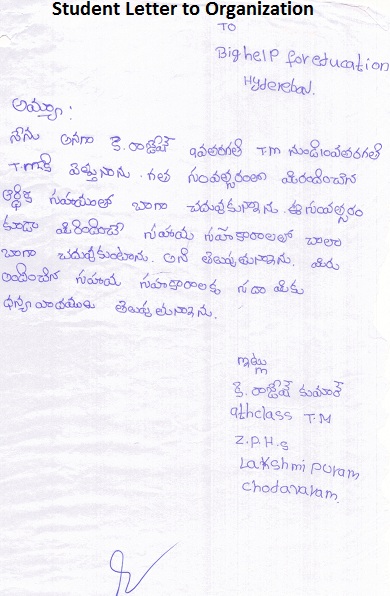 Student Letter to Organization
TO
Bighelp for education
Hyderebad.
అమ్మా:
నేను అనగా కె. రాజేష్ 9వతరగతి T.m నుండి 10వతరగతి
T.mకి వెళ్తున్నాను. గత సంవత్సరంలా మీరందించిన
ఆర్థిక సహాయంతో బాగా చదువుకున్నాను. ఈ సంవత్సరం
కూడా మీరందించే సహాయ సహకారాలతో చాలా
బాగా చదువుకుంటాను. అని తెలుపుతున్నాను. మీరు
అందించిన సహాయ సహకారాలకు సదా మీకు
ధన్యవాదములు తెలుపుతున్నాను.
ఇట్లు
కె. రాజేష్ కుమార్
9thclass T.M
Z.P.H.s
Lakshmi puram
chodavaram.